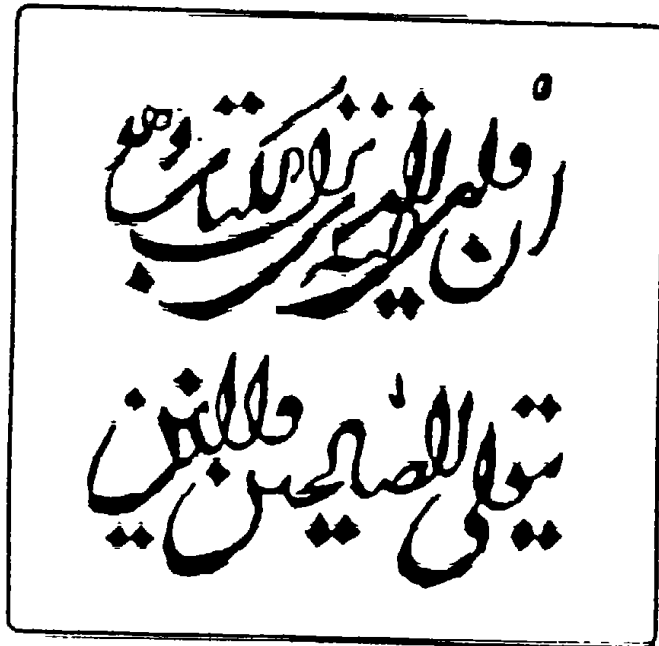 ان وليي الله الذي نزل الكتاب وهو
يتولى الصالحين والذين